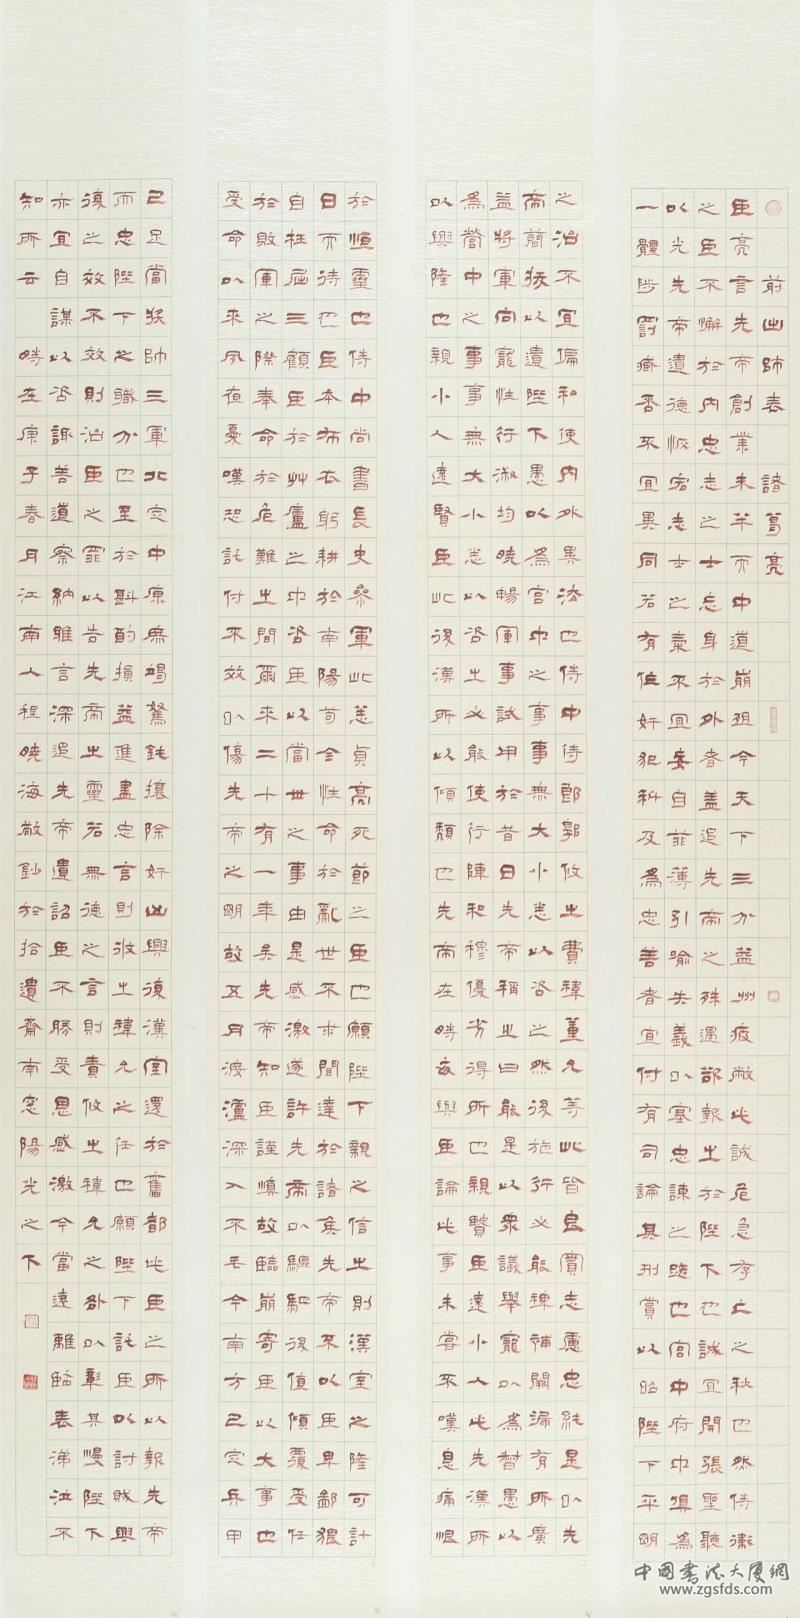 前出師表 諸葛亮
臣亮言先帝創業未半而中道崩殂今天下三分益州疲敝此誠危急存亡之秋也然侍衛
之臣不懈於內忠志之士忘身於外者蓋追先帝之殊遇欲報之於陛下也誠宜開張聖聽
以光先帝遺德恢宏志士之氣不宜妄自菲薄引喻失義以塞忠諫之路也宮中府中俱為
一體陟罰臧否不宜異同若有作奸犯科及為忠善者宜付有司論其刑賞以昭陛下平明
之治不宜偏私使內外異法也侍中侍郎郭攸之費禕董允等此皆良實志慮忠純是以先
帝簡拔以遺陛下愚以為宮中之事事無大小悉以咨之然後施行必能裨補闕漏有所廣
益將軍向寵性行淑均曉暢軍事試用於昔日先帝稱之曰能是以眾議舉寵以為督愚以
為營中之事事無大小悉以咨之必能使行陣和穆優劣得所也親賢臣遠小人此先漢所
以興隆也親小人遠賢臣此後漢所以傾頹也先帝在時每與臣論此事未嘗不嘆息痛恨
於恒靈也侍中尚書長史參軍此悉貞亮死節之臣也願陛下親之信之則漢室之隆可計
日而待也臣本布衣躬耕於南陽苟全性命於亂世不求聞達於諸侯先帝不以臣卑鄙猥
自枉屈三顧臣於艸廬之中咨臣以當世之事由是感激遂許先帝以驅馳後值傾覆受任
於敗軍之際奉命於危難之間爾來二十有一年矣先帝知臣謹慎故臨崩寄臣以大事也
受命以來夙夜憂嘆恐託付不效以傷先帝之明故五月渡瀘深入不毛今南方已定兵甲
已足當獎帥三軍北定中原庶竭駑鈍攘除奸凶興復漢室還於舊都此臣之所以報先帝
而忠陛下之職分也至於斟酌損益進盡忠言則攸之禕允之任也願陛下託臣以討賊興
復之效不效則治臣之罪以告先帝之靈若無德之言則責攸之禕允之咎以彰其慢陛下
亦宜自謀以咨諏善道察納雅言深追先帝遺詔臣不勝受恩感激今當遠離臨表涕泣不
知所云 時在庚子春月江南人程曉海敬鈔於拾遺齋南窗陽光之下
中國書法大廈網
www.zgsfds.com